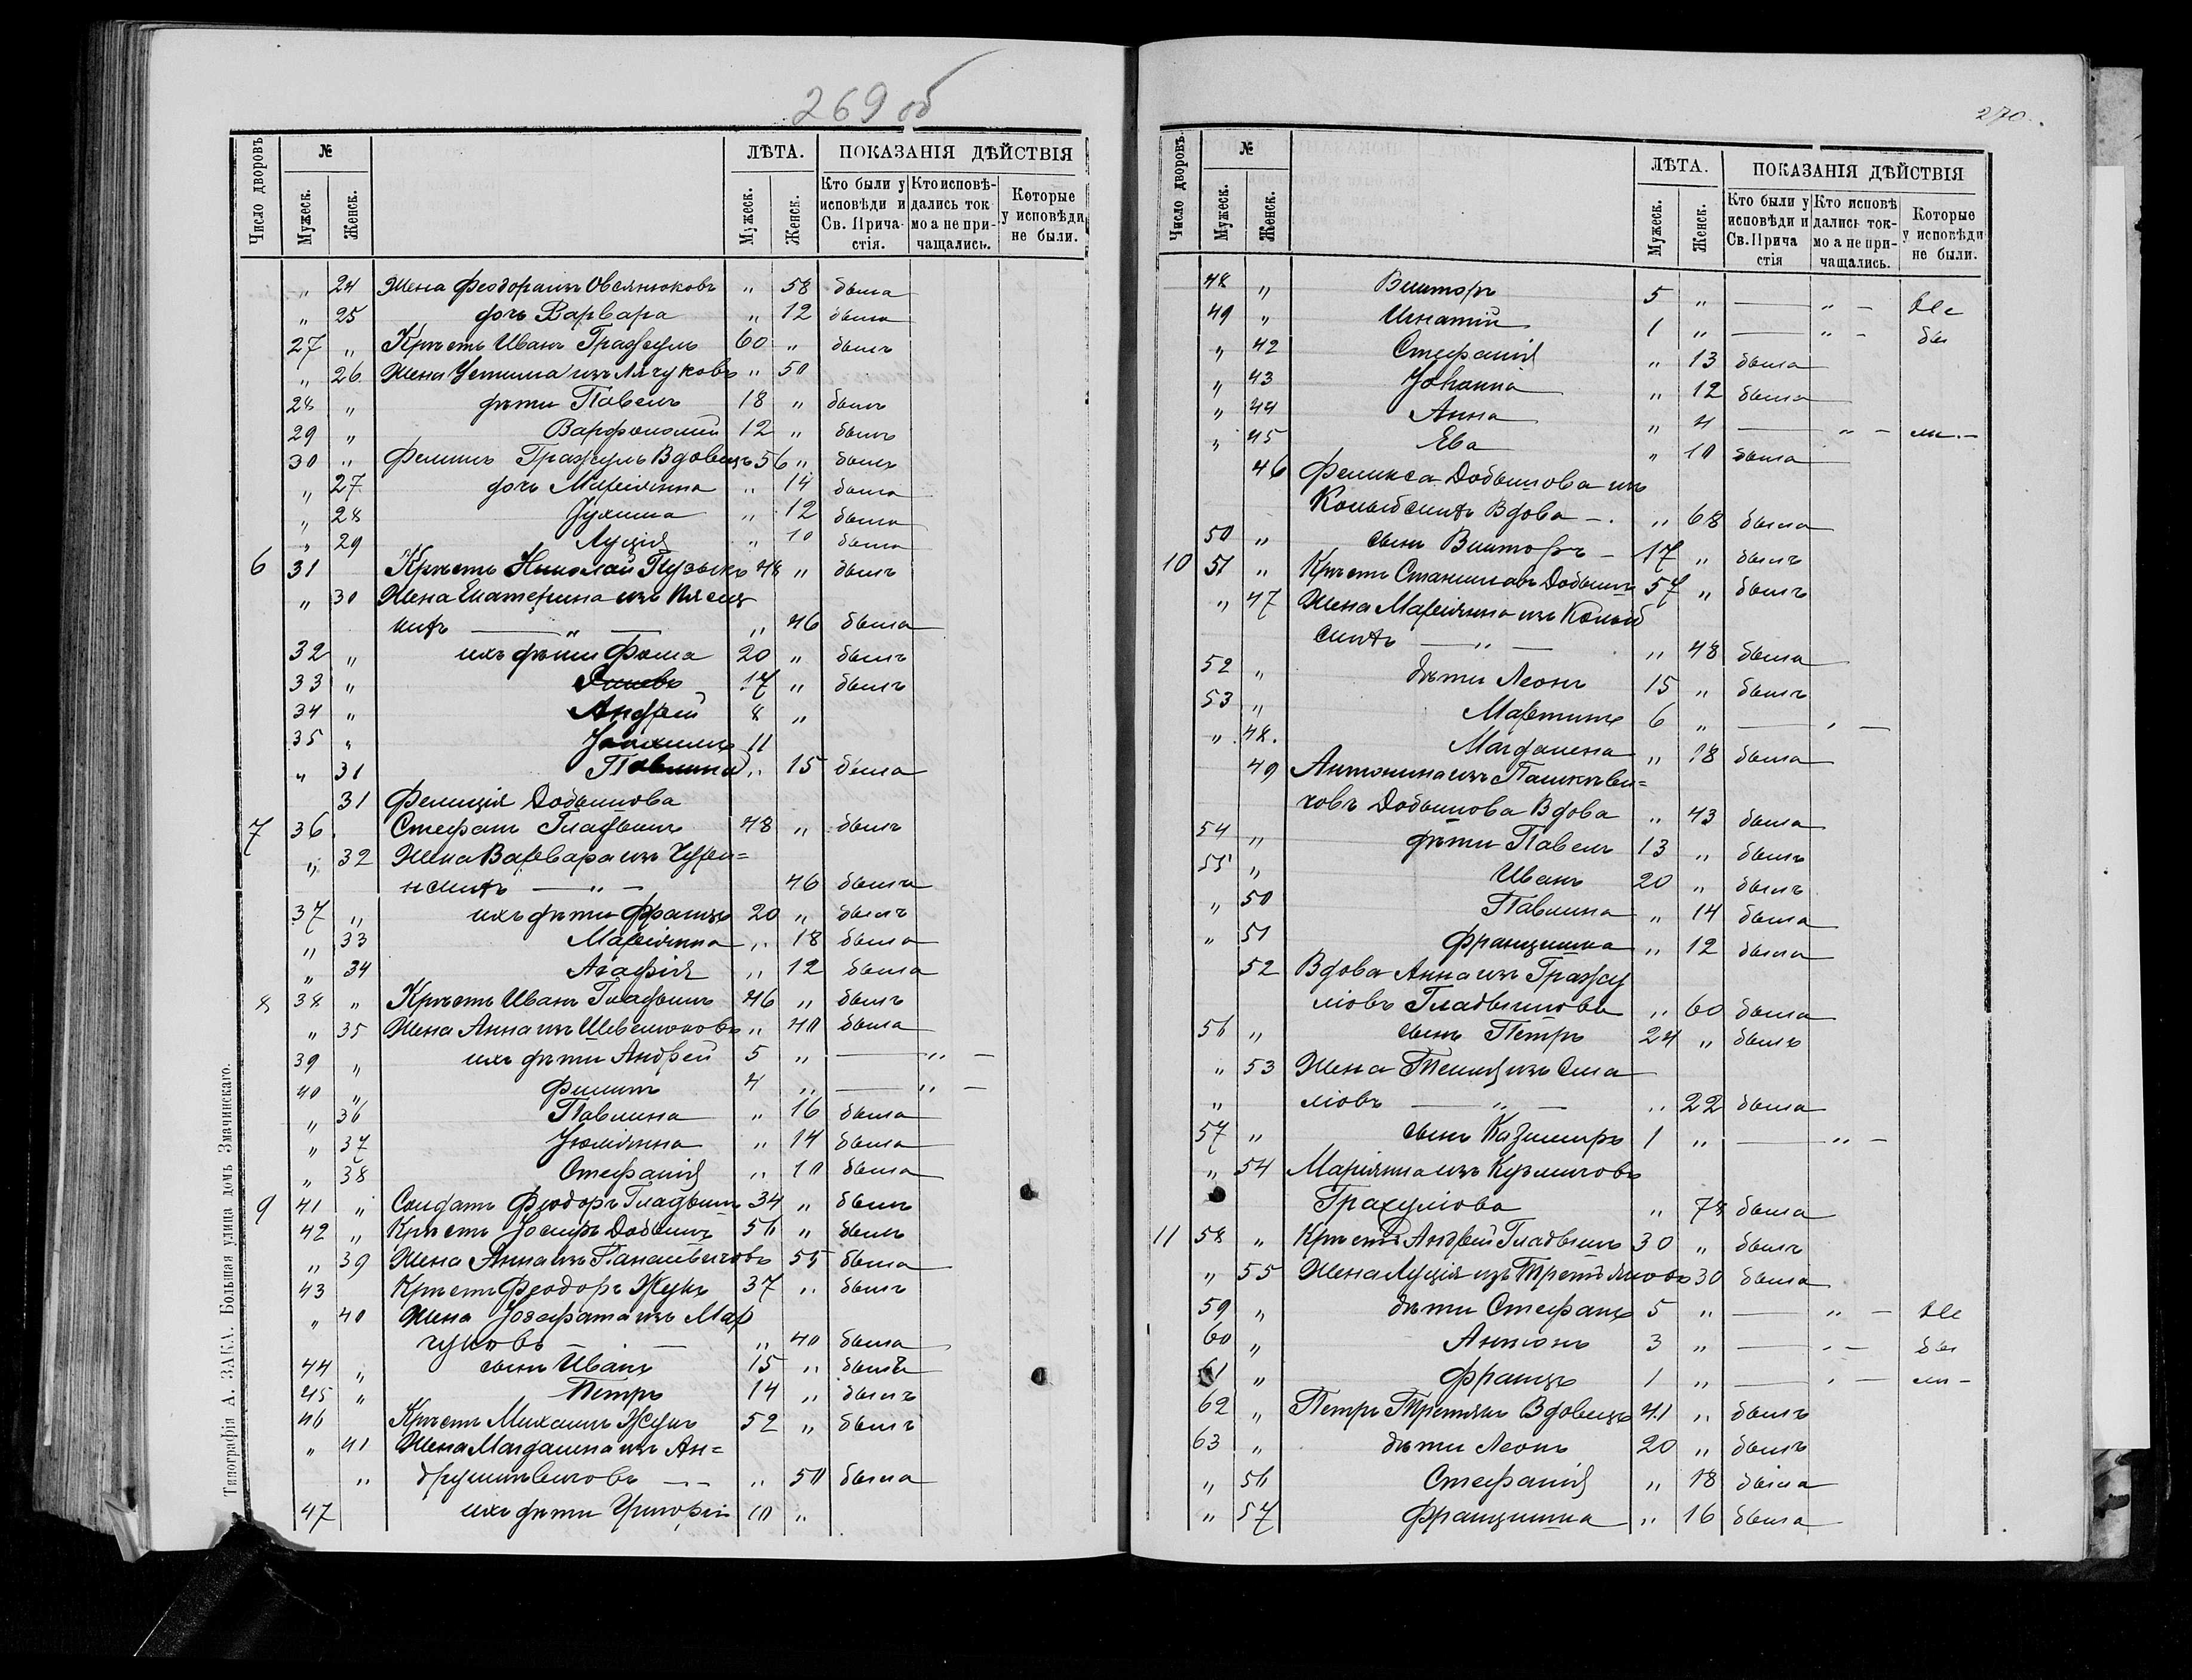 269 об
Число дворовъ.
№
Мужеск.
Женск.
ЛѢТА.
Мужеск.
Женск.
ПОКАЗАНІЯ ДѢЙСТВІЯ
Кто были у исповѣди и Св. Прича-стія.
Кто исповѣ-дались ток мо а не при-чащались.
Которые у исповѣди не были.
„ 24 Жена Феодора изъ Овсянюковъ „ 58 была
„ 25 дочь Варвара „ 12 была
27 „ Крѣстъ Иванъ 60 „ былъ
„ 26 Жена Устина изъ „ 50
28 „ дѣти Павелъ 18 „ былъ
29 „ Варфоломій 12 „ былъ
30 „ Вдовецъ 56 „ былъ
„ 27 дочь Маріянна „ 14 была
„ 28 „ 12 была
„ 29 Луція „ 10 была
6 31 Крѣстъ Николай 48 „ былъ
„ 30 Жена Екатерина изъ
„ 46 была
32 „ ихъ дѣти Фома 20 „ былъ
33 „ 17 „ былъ
34 „ Андрей 8 „
35 „ 11
„ 31 Павлина „ 15 была
31 Фелиція Добылиова
7 36 Стефанъ Гладышъ 48 „ былъ
„ 32 Жена Варвара изъ
„ 46 была
37 „ ихъ дѣти Францъ 20 „ былъ
„ 33 Маріянна „ 18 была
„ 34 Агафія „ 12 была
8 38 „ Крѣстъ Иванъ Гладышъ 46 „ былъ
„ 35 Жена Анна изъ „ 40 была
39 „ ихъ дѣти Андрей 5 „ — „ —
40 „ Филипъ 4 „ — „ —
„ 36 Павлина „ 16 была
„ 37 Юліянна „ 14 была
„ 38 Стефанія „ 10 была
9 41 „ Солдатъ Феодоръ Гладышъ 34 „ былъ
42 „ Крѣстъ Іосифъ 56 „ былъ
„ 39 Жена Анна изъ 55 была
43 Крѣстъ Феодоръ Жукъ 37 „ былъ
„ 40 Жена Іозефата изъ Мар
чуковъ — — „ 40 была
44 „ сынъ Иванъ 15 „ былъ
45 „ Петръ 14 „ былъ
46 Крѣстъ Михаилъ Жукъ 52 „ былъ
„ 41 Жена Магдалина изъ Ан=
„ „ 50 была
47 ихъ дѣти Григорій 10 „
Типографія А. ЗАКА. Большая улица домъ Змачинскаго.
270.
Число дворовъ.
№
Мужеск.
Женск.
ЛѢТА.
Мужеск.
Женск.
ПОКАЗАНІЯ ДѢЙСТВІЯ
Кто были у исповѣди и Св. Прича стія
Кто исповѣ дались ток-мо а не при-чащались.
Которые у исповѣди не были.
48 „ Викторъ 5 „ — „ — Не
49 „ Игнатій 1 „ — „ — бы
„ 42 Стефанія „ 13 была
„ 43 Іоанна „ 12 была
„ 44 Анна „ 4 — „ — ли. —
„ 45 Ева „ 10 была
46 Феликса изъ
Вдова — . „ 68 была
50 „ сынъ Викторъ — 17 „ былъ
10 51 „ Крѣстъ Станиславъ 57 „ былъ
„ 47 Жена Маріянна изъ
— „ — „ 48 была
52 „ дѣти Леонъ 15 „ былъ
53 „ Мартинъ 6 „ — „ —
„ 48. Магдалена „ 18 была
49 Антонина изъ
Вдова „ 43 была
54 „ дѣти Павелъ 13 „ былъ
55 „ Иванъ 20 „ былъ
„ 50 Павлина „ 14 была
„ 51 Францишка „ 12 была
52 Вдова Анна изъ
„ 60 была
56 „ сынъ Петръ 24 „ былъ
„ 53 Жена изъ
„ — „ — „ 22 была
57 „ сынъ Казимиръ 1 „ — „ —
„ 54 Маріянна изъ Кузмичовъ
„ 78 была
11 58 „ Крѣстъ Андрей Гладышъ 30 „ былъ
„ 55 Жена Луція изъ Третьяковъ 30 была
59 „ дѣти Стефанъ 5 „ — „ — Не
60 „ Антонъ 3 „ — „ — бы
61 „ Францъ 1 „ — „ — ли —
62 „ Петръ Третякъ Вдовецъ 41 „ былъ
63 „ дѣти Леонъ 20 „ былъ
„ 56 Стефанія „ 18 была
„ 57 Францишка „ 16 была